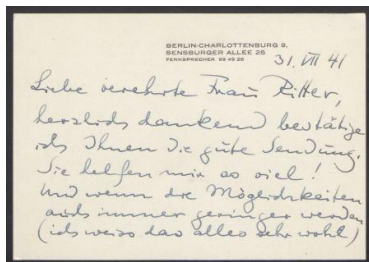 BERLIN-CHARLOTTENBURG 9,
SENSBURGER ALLEE 26
FERNSPRECHER 99 49 26
31. VIII 41
Liebe verehrte Frau Ritter,
herzlich dankend bestätige
ich Ihnen die gute Sendung.
Sie helfen mir so viel!
Und wenn die Möglichkeiten
auch immer geringer werden
(ich weiss das alles sehr wohl)